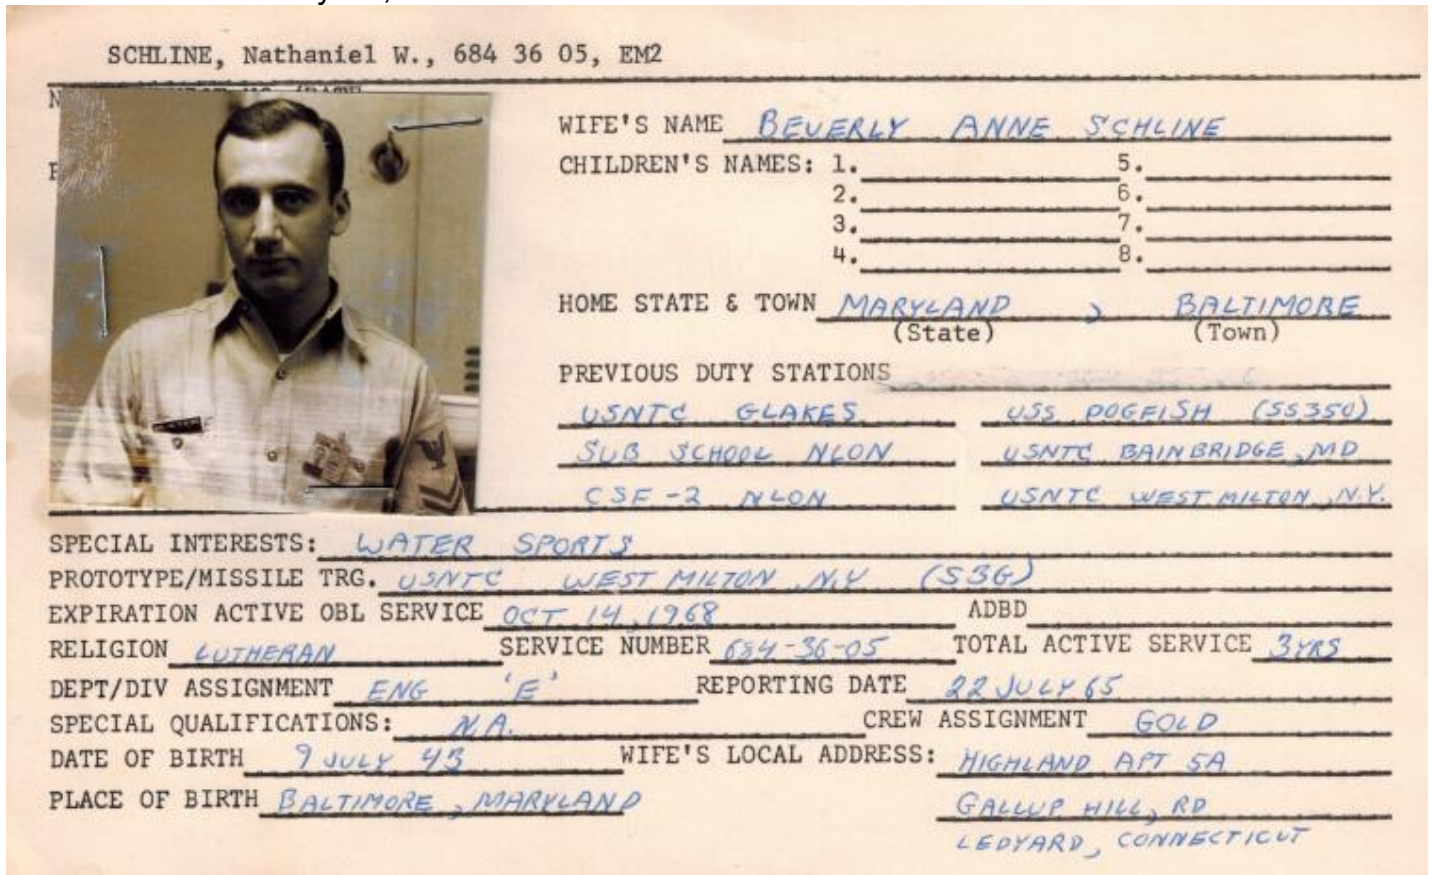 SCHLINE, Nathaniel W., 684 36 05, EM2
WIFE'S NAME BEVERLY ANNE SCHLINE
CHILDREN'S NAMES: 1. 5.
2. 6.
3. 7.
4. 8.
HOME STATE & TOWN MARYLAND , BALTIMORE
(State) (Town)
PREVIOUS DUTY STATIONS
USNTC GLAKES USS DOGFISH (SS350)
SUB SCHOOL NLON USNTC BAINBRIDGE, MD
CSF-2 NLON USNTC WEST MILTON, N.Y.
SPECIAL INTERESTS: WATER SPORTS
PROTOTYPE/MISSILE TRG. USNTC WEST MILTON, N.Y (S3G)
EXPIRATION ACTIVE OBL SERVICE OCT 14, 1968 ADBD
RELIGION LUTHERAN SERVICE NUMBER 684-36-05 TOTAL ACTIVE SERVICE 3YRS
DEPT/DIV ASSIGNMENT ENG 'E' REPORTING DATE 22 JULY 65
SPECIAL QUALIFICATIONS: N.A. CREW ASSIGNMENT GOLD
DATE OF BIRTH 9 JULY 43 WIFE'S LOCAL ADDRESS: HIGHLAND APT 5A
PLACE OF BIRTH BALTIMORE, MARYLAND GALLUP HILL, RD
LEDYARD, CONNECTICUT